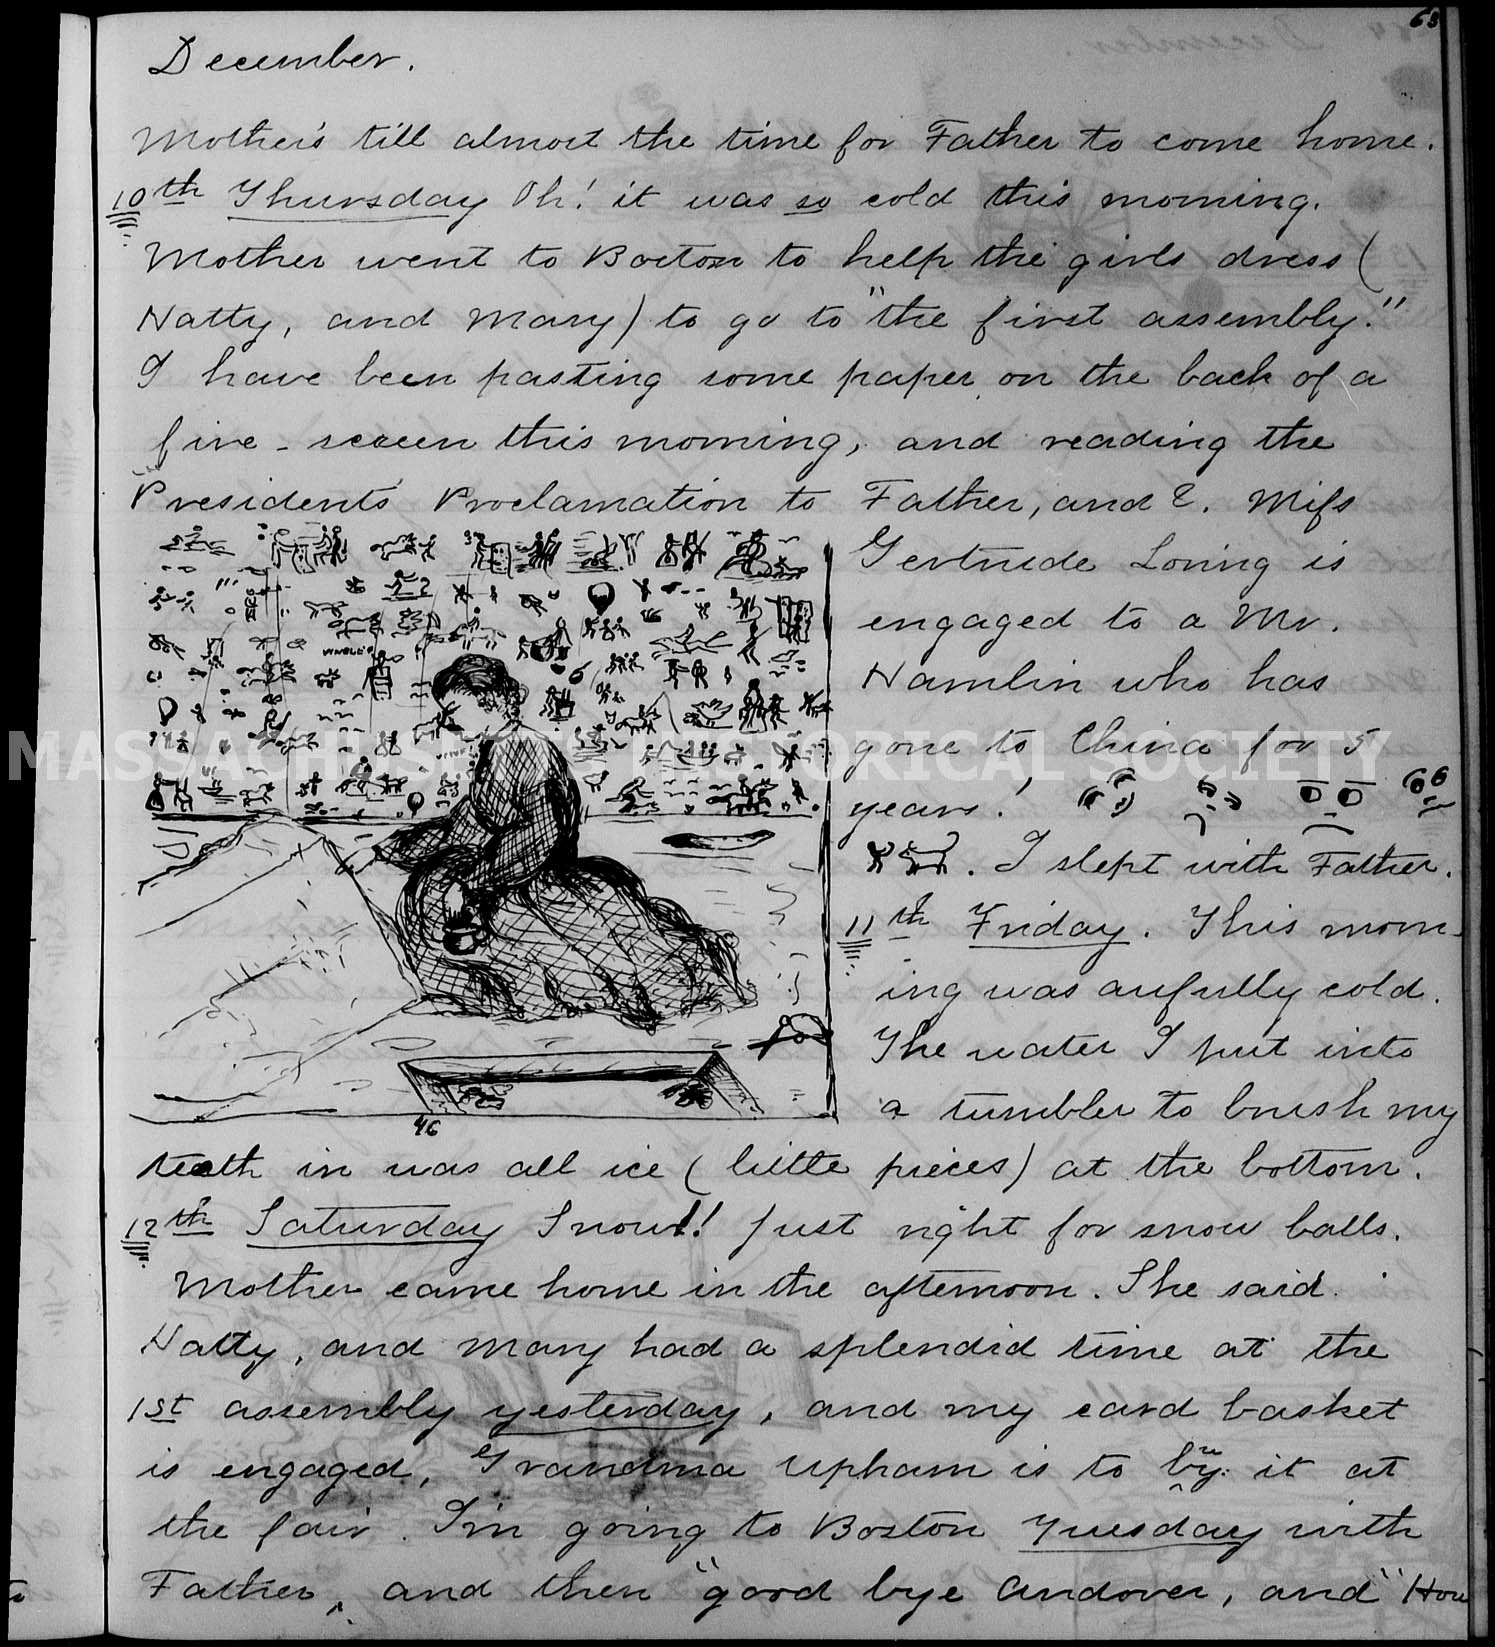 63
December.
Mother's till almost the time for Father to come home.
10th Thursday Oh! it was so cold this morning.
Mother went to Boston to help the girls dress (
Hatty, and Mary) to go to "the first assembly."
I have been pasting some paper on the back of a
fire-screen this morning, and reading the
Presidents Proclamation to Father, and E. Miss
Gertrude Loring is
engaged to a Mr.
Hamlin who has
gone to China for 5
years!
. I slept with Father.
11th Friday. This morn-
ing was awfully cold.
The water I put into
a tumbler to brush my
46
teath in was all ice (little pieces) at the bottom.
12th Saturday Snow!! Just right for snow balls.
Mother came home in the afternoon. She said
Hatty, and Mary had a splendid time at the
1st assembly yesterday, and my card basket
is engaged, Grandma Upham is to buy it at
the fair. I'm going to Boston Tuesday with
Father, and then "good bye Andover, and" How
MASSACHUSETTS HISTORICAL SOCIETY